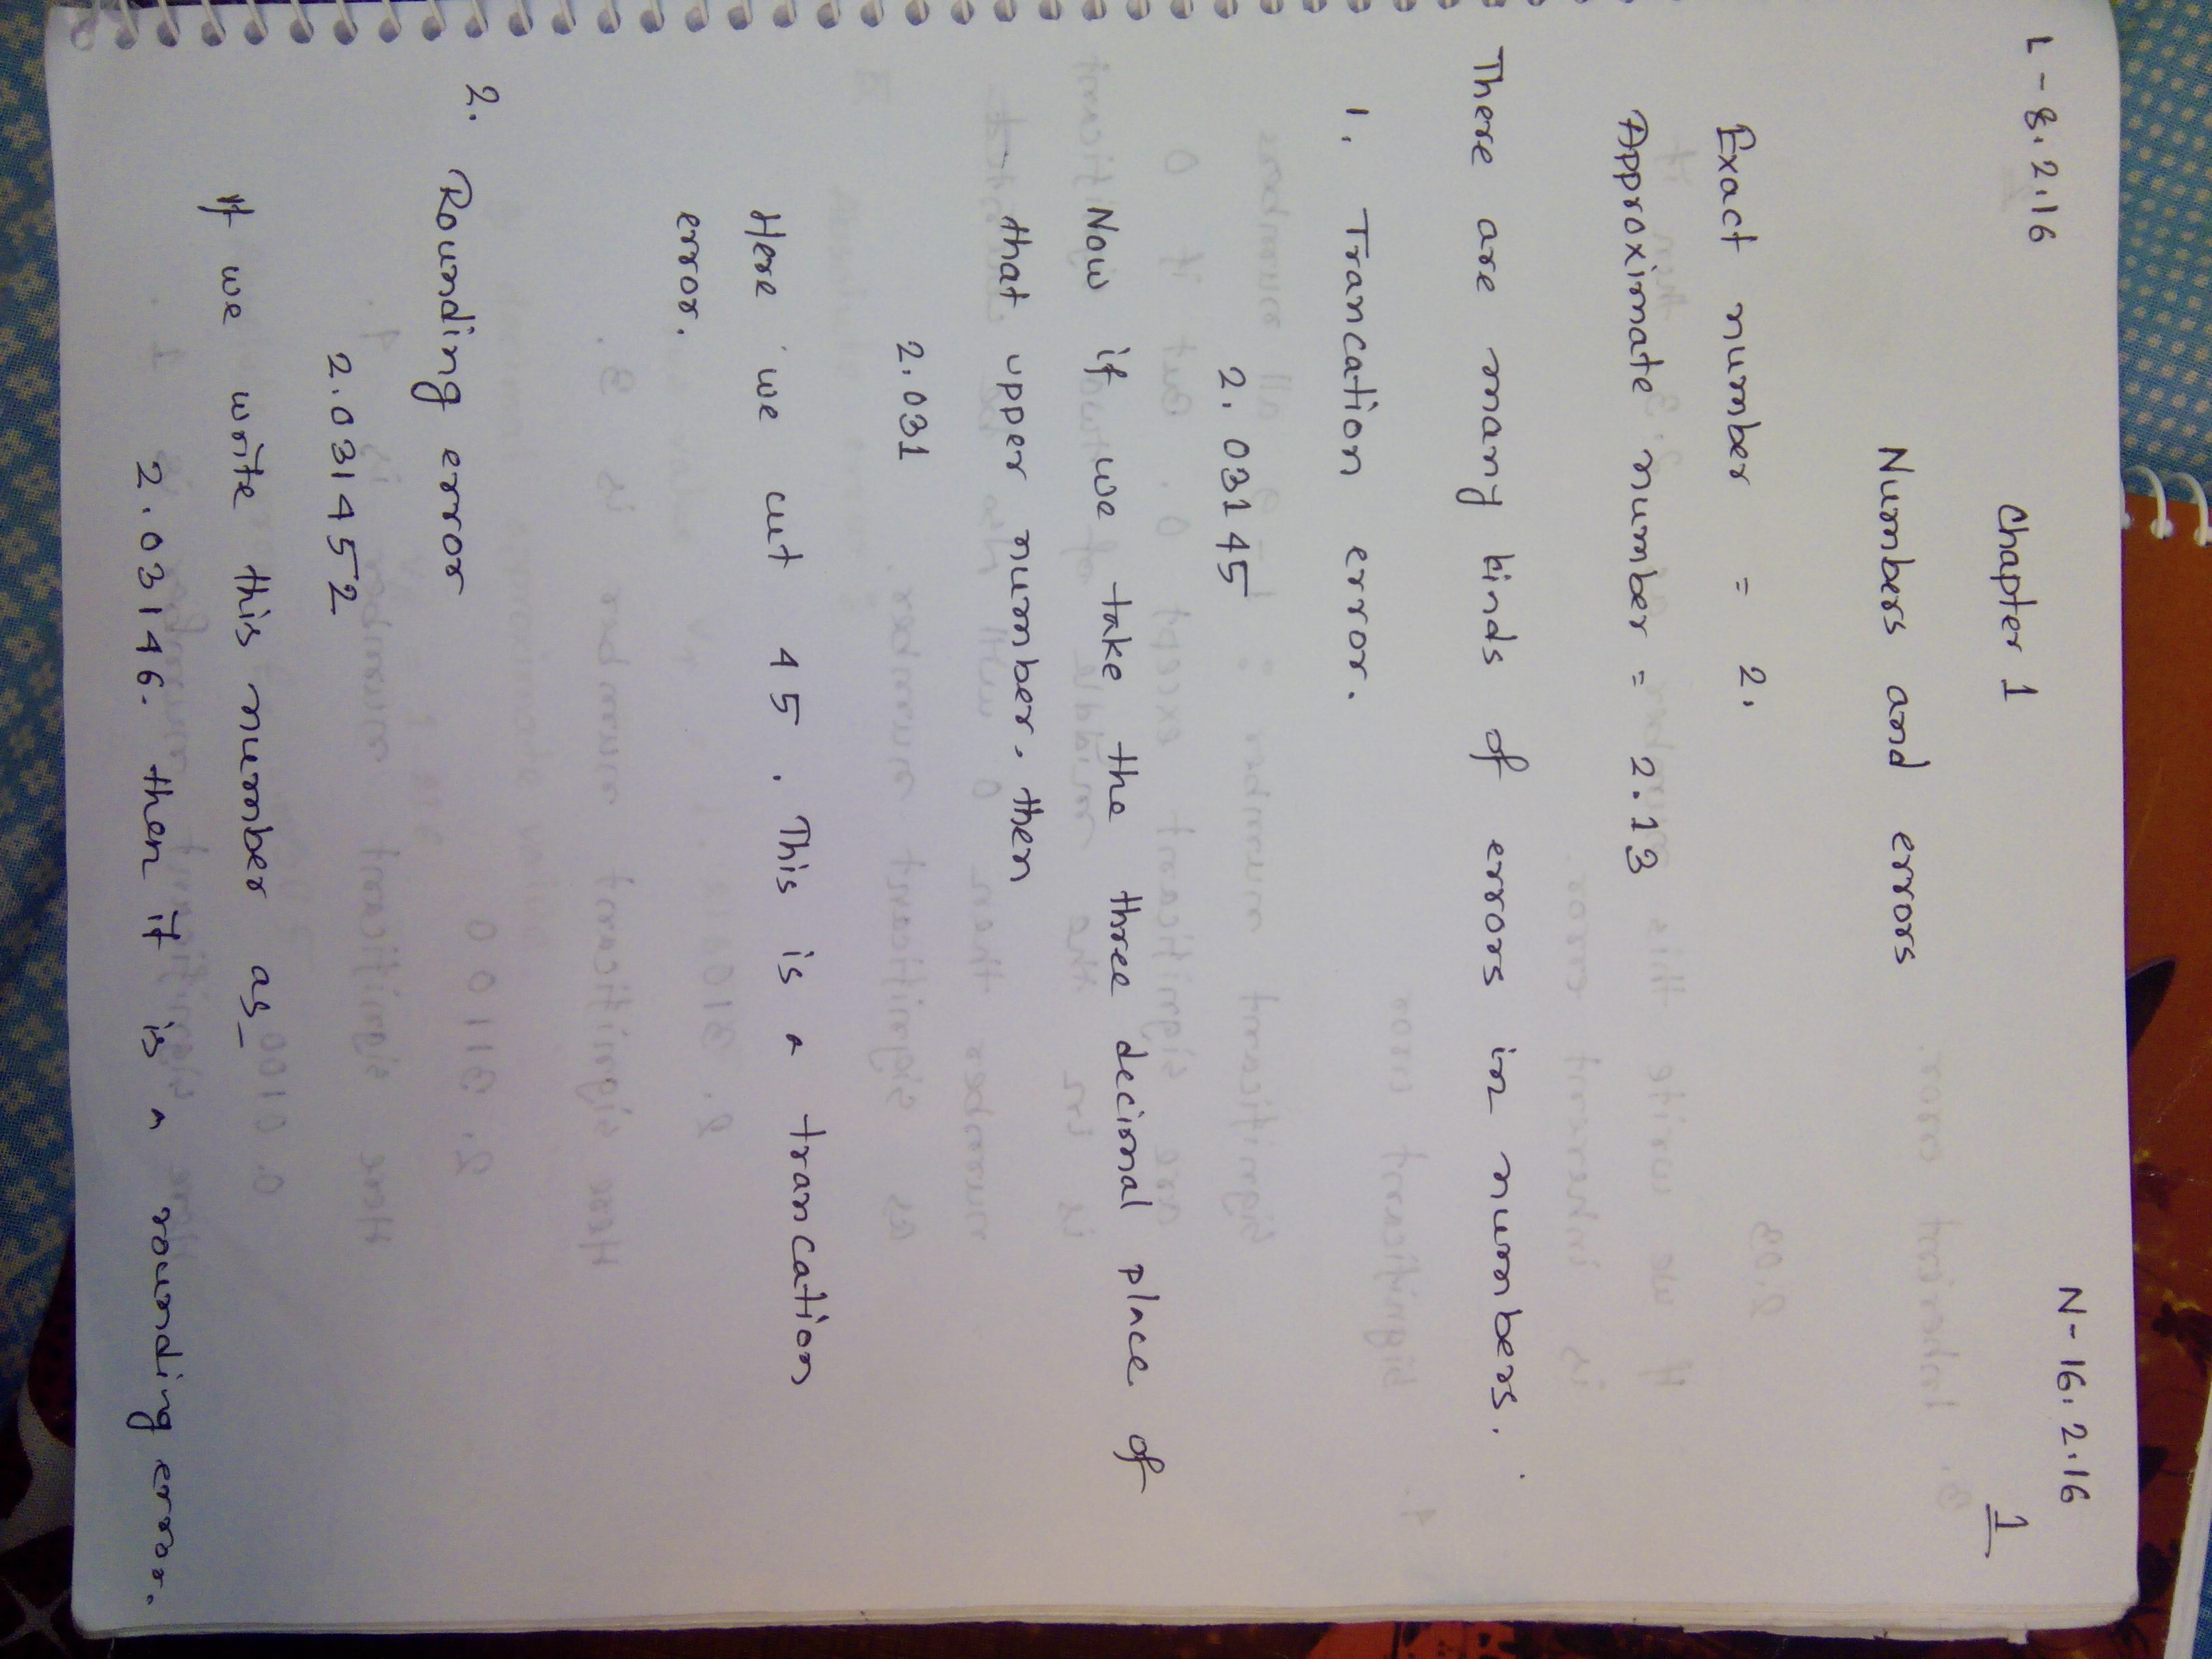 L - 8.2.16
N - 16.2.16
Chapter 1
1
Numbers and errors
Exact number = 2.
Approximate number = 2.13
There are many kinds of errors in numbers.
1. Trancation error.
2.03145
Now if we take the three decimal place of
that upper number. then
2.031
Here we cut 45. This is a trancation
error.
2. Rounding error
2.031452
If we write this number as_
2.03146. then it is a rounding error.